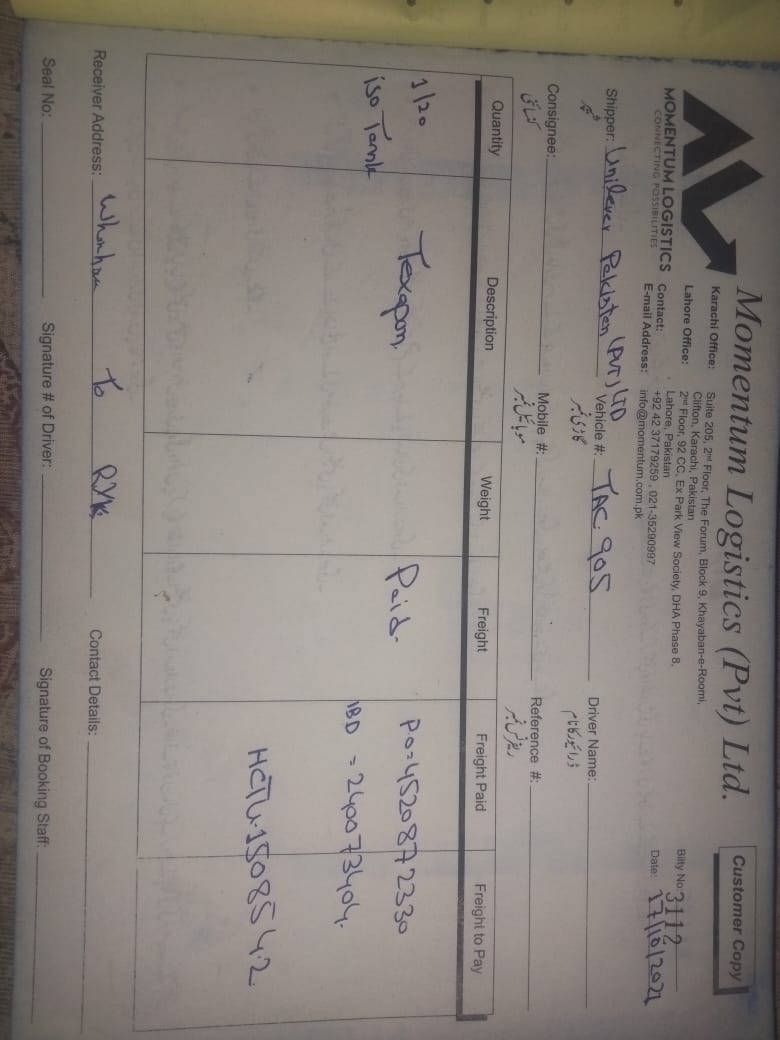 Momentum Logistics (Pvt) Ltd.
Customer Copy
MOMENTUM LOGISTICS
CONNECTING POSSIBILITIES
Karachi Office: Suite 205, 2nd Floor, The Forum, Block 9, Khayaban-e-Roomi,
Clifton, Karachi, Pakistan
Lahore Office: 2nd Floor, 92 CC, Ex Park View Society, DHA Phase 8,
Lahore, Pakistan
Contact: +92 42 37179259 , 021-35290997
E-mail Address: info@momentum.com.pk
Bilty No: 3112
Date: 17/10/2021
Shipper: Unilever Pakistan (PVT) LTD Vehicle #: TAC 905 Driver Name:
شپر گاڑی نمبر ڈرائیور کا نام
Consignee: Mobile #: Reference #:
کنسائنی موبائیل نمبر ریفرنس نمبر
Quantity Description Weight Freight Freight Paid Freight to Pay
1/20 Texapon. Paid. PO=4520872330
iso Tank IBD = 240073404.
HCTU.150854.2
Receiver Address: To RYK Contact Details:
Seal No: Signature # of Driver: Signature of Booking Staff: